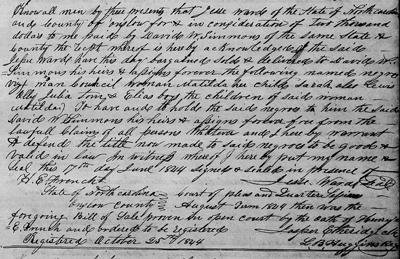 Know all men by these presents that I Jesse Ward of the State of North Carolina
and County of Onslow for & in consideration of Two thousand
dollars to me paid by David W. Simmons of the same State &
County the rcpt whereof is hereby acknowledged the said
Jesse Ward have this day bargained Sold & delivered to David W.
Simmons his heirs & assigns forever the following named negroes
viz man Council woman Matilda her child Sarah also
the children of said woman
Matilda) To have and to hold the said negroes to him the said
David W Simmons his heirs & assigns forever free from the
lawfull Claims of all persons Whatever and I hereby warrant
& defend the title now made to said negroes to be good &
Valid in law In witness whereof I hereby put my name &
Seal this 17th day June 1844 signed & sealed in presence of
H. E. Jesse Ward Seal
State of North Carolina Court of pleas and Quarter Sessions
Onslow County August Term 1844 then was the
foregoing Bill of Sale proven in open court by the oath of
E. and ordered to be registered
Registered October 25th 1844